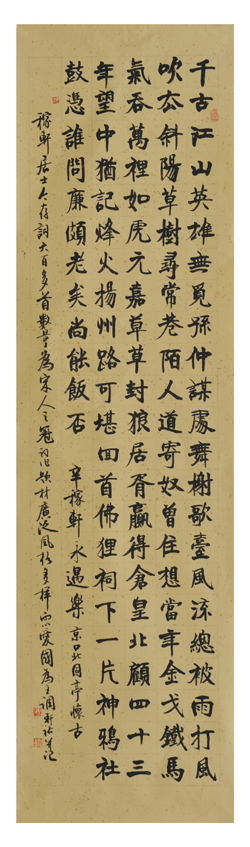 千古江山英雄無覓孫仲謀處舞榭歌臺風流總被雨打風
吹去斜陽草樹尋常巷陌人道寄奴曾住想當年金戈鐵馬
氣吞萬裡如虎元嘉草草封狼居胥贏得倉皇北顧四十三
年望中猶記烽火揚州路可堪回首佛狸祠下一片神鴉社
鼓憑誰問廉頗老矣尚能飯否 辛稼軒永遇樂 京口北固亭懷古
稼軒居士今存詞六百多首數量為宋人之冠詞作題材廣泛風格多樣而愛國為主調